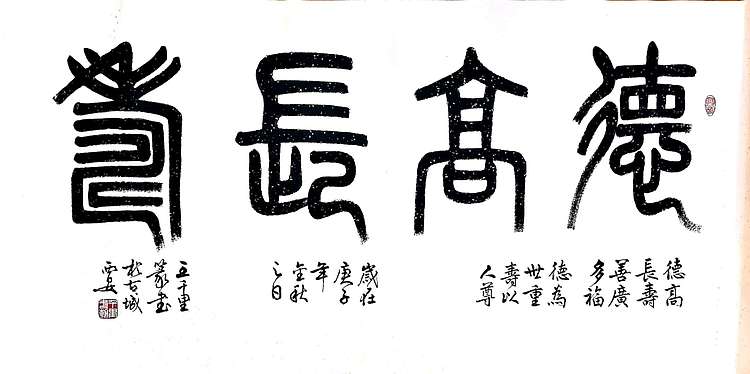 德高長壽
德高
長壽
善廣
多福
德為
世重
壽以
人尊
歲在
庚子
年
金秋
之日
王千里
篆書
於古城
西安